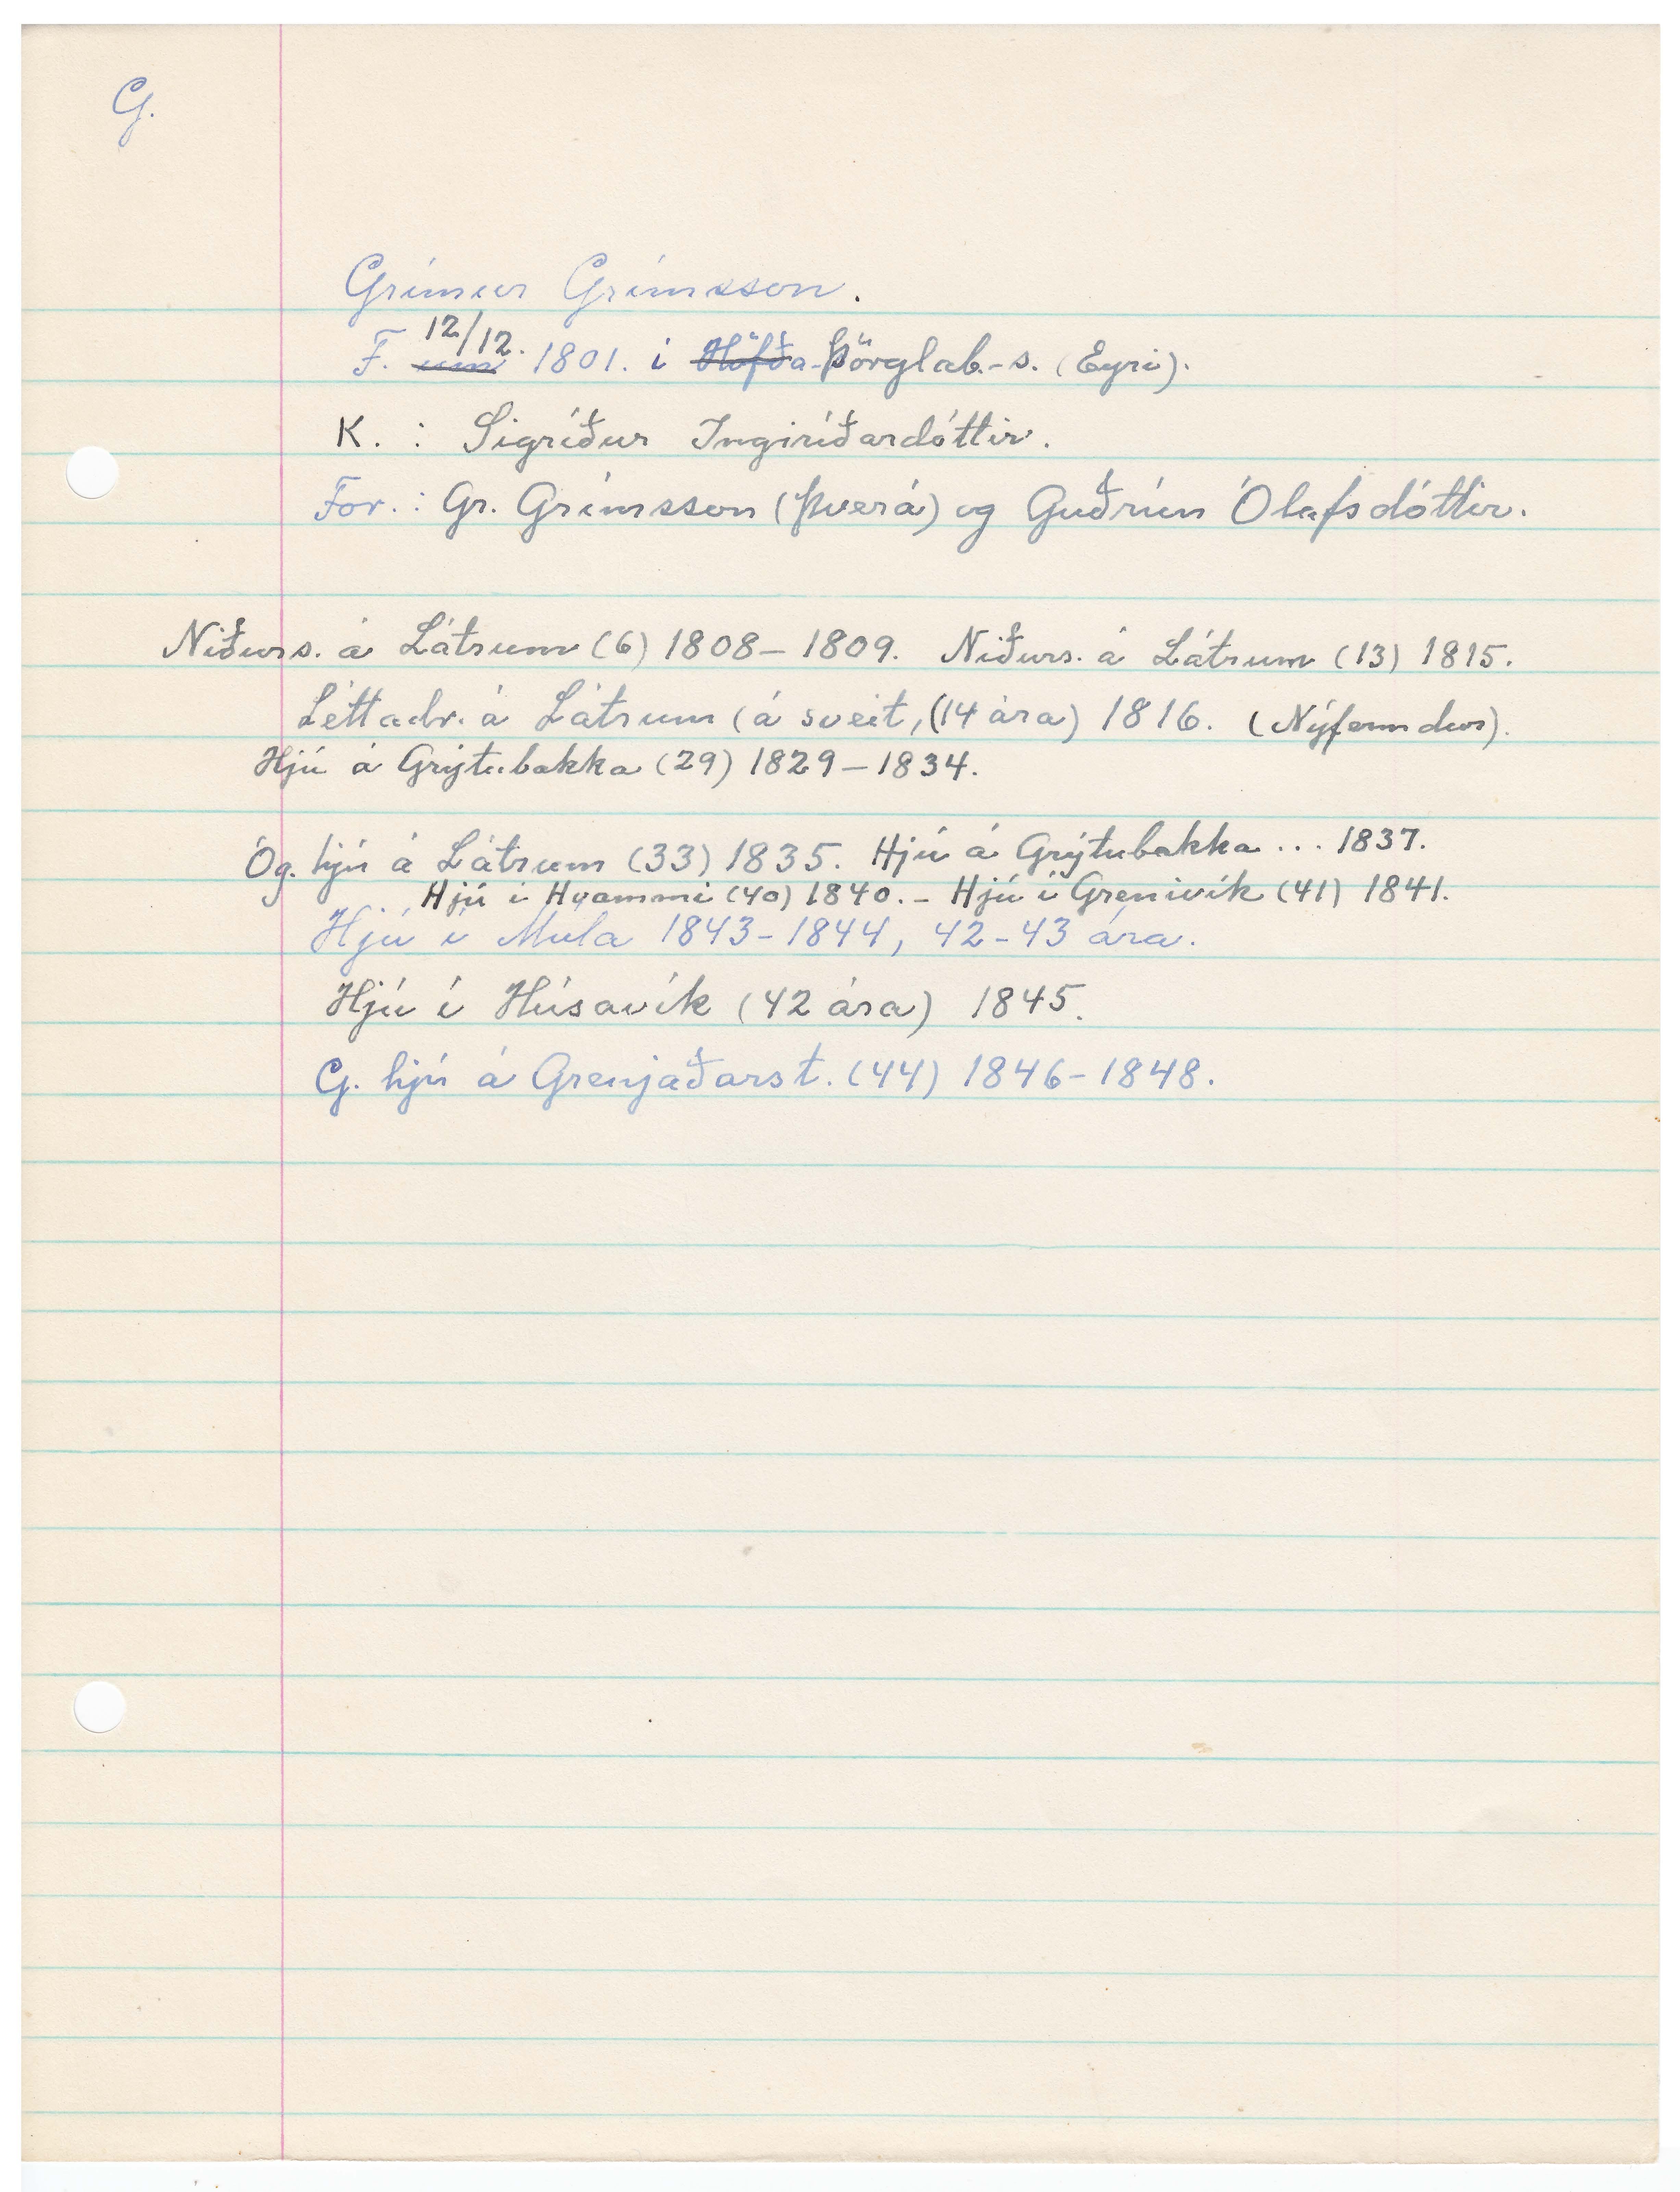 G.
Grímur Grímsson.
12/12.
F. um 1801. í Höfða-Þörglab.-s. (Eyri).
K. : Sigríður Ingiríðardóttir.
For. : Gr. Grímsson (Þverá) og Guðrún Ólafsdóttir.
Niðurs. á Látrum (6) 1808-1809. Niðurs. á Látrum (13) 1815.
Léttadr. á Látrum (á sveit, (14 ára) 1816. (Nýfermdur).
Hjú á Grýtubakka (29) 1829-1834.
Óg. hjú á Látrum (33) 1835. Hjú á Grýtubakka ... 1837.
Hjú í Hvammi (40) 1840. - Hjú í Grenivík (41) 1841.
Hjú í Múla 1843-1844, 42-43 ára.
Hjú í Húsavík (42 ára) 1845.
G. hjú á Grenjaðarst. (44) 1846-1848.